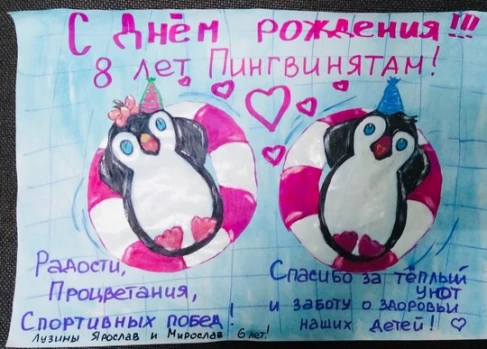 С Днём рождения!!!
8 лет Пингвинятам!
Радости,
Процветания,
Спортивных побед!
Лузины Ярослав и Мирослав 6 лет!
Спасибо за тёплый
уют
и заботу о здоровьи
наших детей!